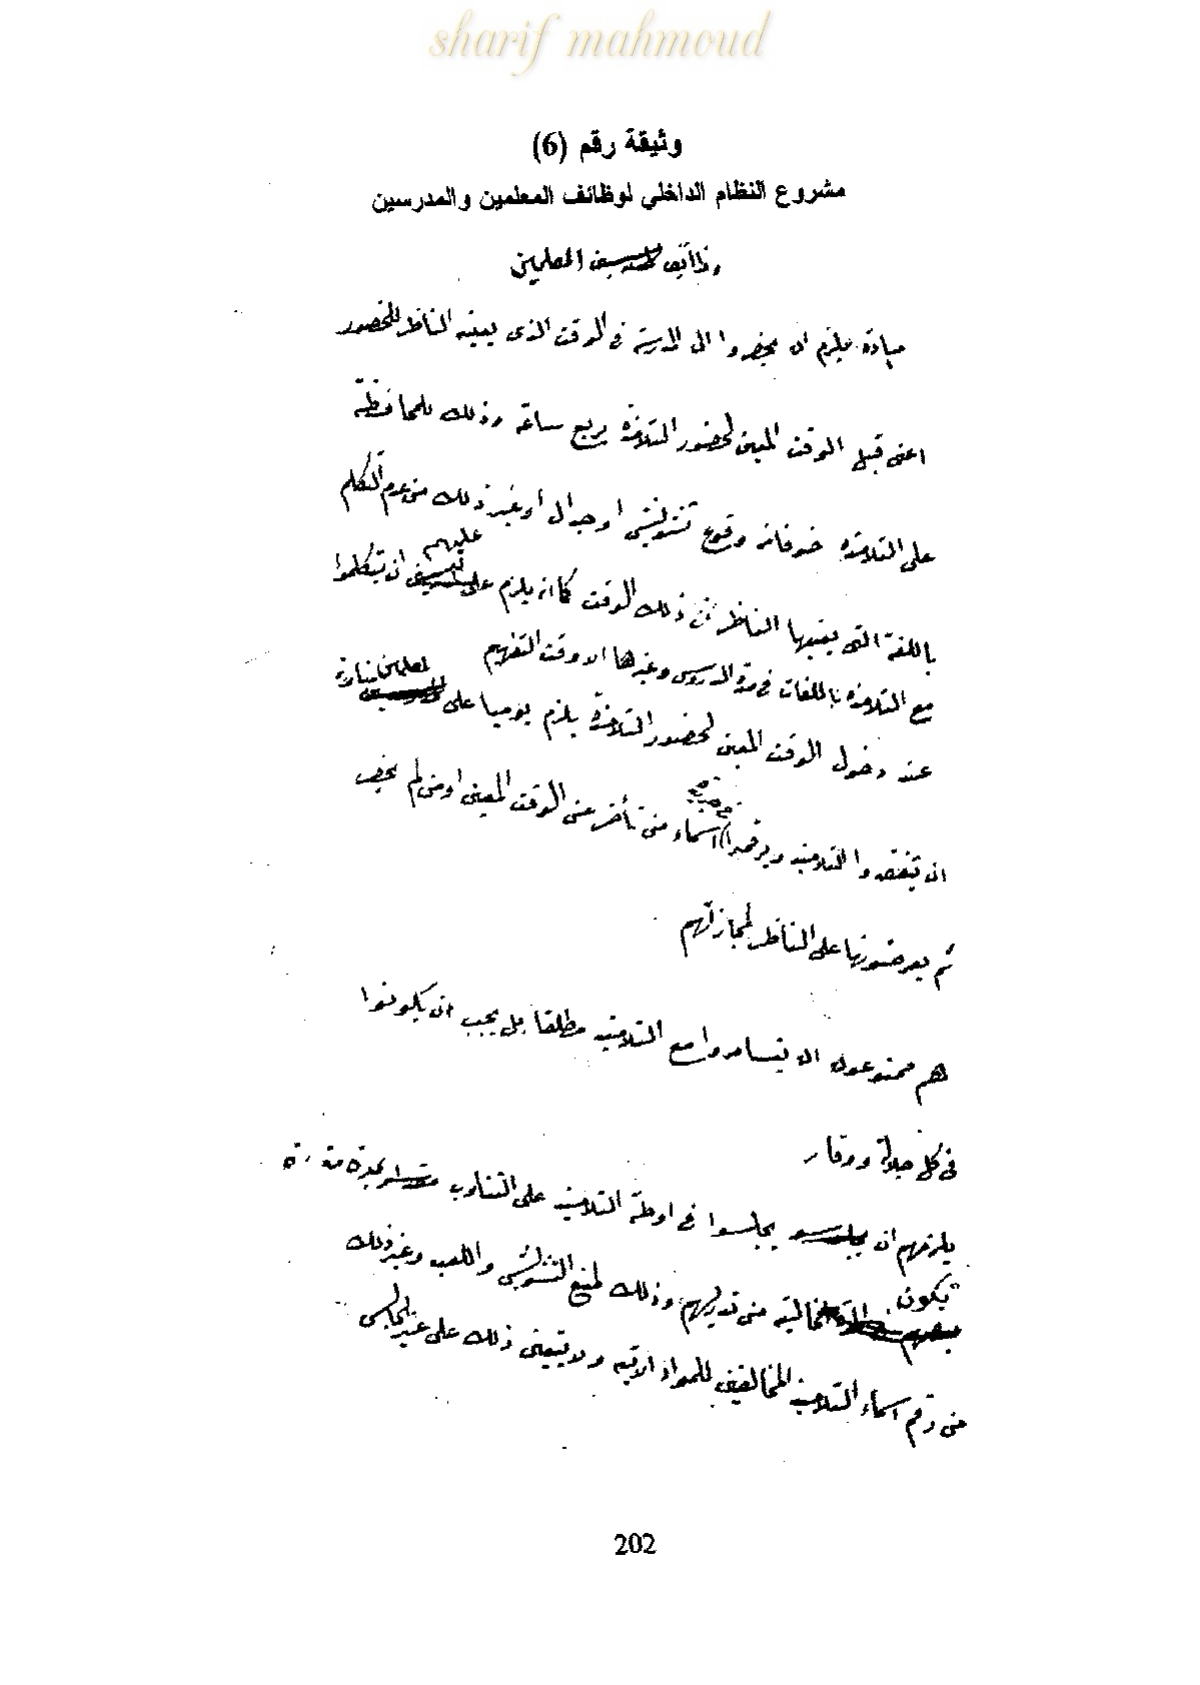 sharif mahmoud
وثيقة رقم (6)
مشروع النظام الداخلي لوظائف المعلمين والمدرسين
وظائف المعلمين
يلزم ان يحضروا الى المدرسة فى الوقت الذى يعينه الناظر للحضور
اعنى قبل الوقت المعين لحضور التلامذة بربع ساعة وذلك للمحافظة
على التلامذة خوفا من وقوع تشويش او جدال أو غير ذلك من عدم التكلم
باللغة التى يعينها الناظر فى ذلك الوقت كما انه يلزم عليهم ان يتكلموا
مع التلامذة باللغات فى مدة الدروس وغيرها الا وقت التفهيم
عند دخول الوقت المعين لحضور التلامذة يلزم يوميا على المعلمين
ان يتفقدوا التلاميذ ويرقموا اسماء من تأخر عن الوقت المعين او من لم يحضر
ثم يعرضونها على الناظر لمجازاتهم
هم ممنوعون ان يتسامروا مع التلاميذ مطلقا بل يجب ان يكونوا
فى كل جلالة ووقار
يلزمهم ان يجلسوا فى اوطة التلاميذ على التناوب
تكون خالية من تدريسهم وذلك لمنع التشويش واللعب وغير ذلك
من رقم اسماء التلاميذ المخالفين للمواد الاتية ولا يتبقى ذلك على غير الجالس
202